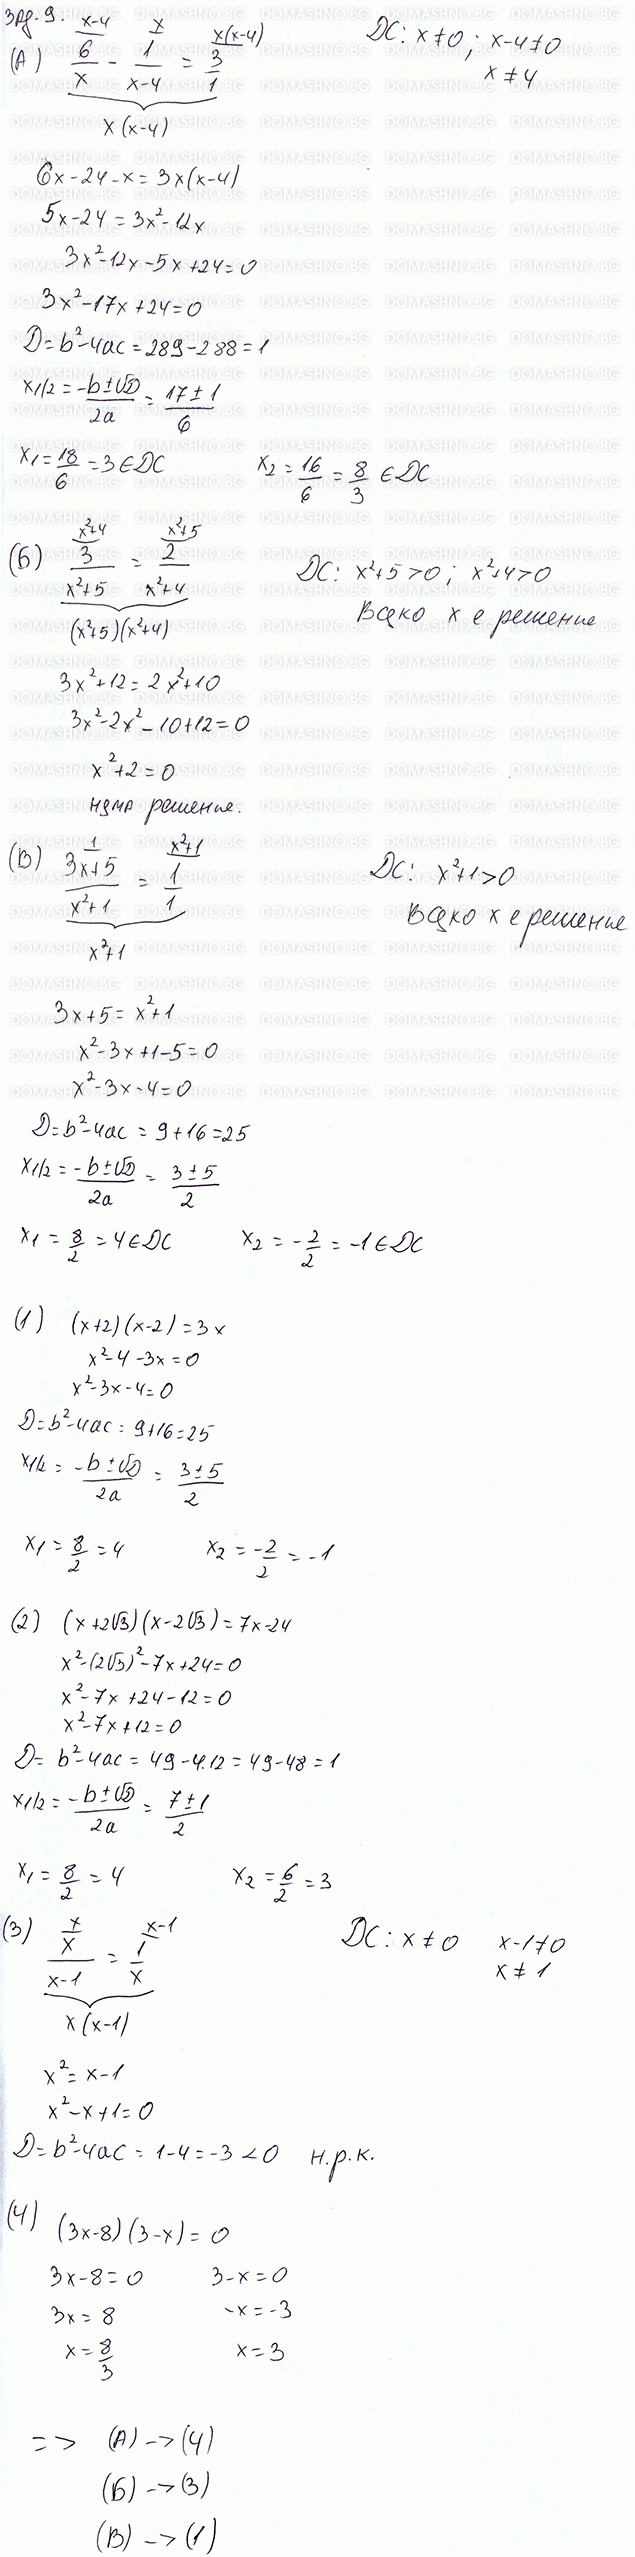 Зад. 9.
(А) \frac{6}{x} - \frac{1}{x-4} = \frac{3}{1} ДС: x≠0 ; x-4≠0
x-4 x x(x-4) x≠4
x(x-4)
6x-24-x=3x(x-4)
5x-24=3x²-12x
3x²-12x-5x+24=0
3x²-17x+24=0
D=b²-4ac=289-288=1
x1/2=\frac{-b±√D}{2a}=\frac{17±1}{6}
x₁=\frac{18}{6}=3∈ДС x₂=\frac{16}{6}=\frac{8}{3}∈ДС
(Б) \frac{3}{x²+5}=\frac{2}{x²+4} ДС: x²+5>0; x²+4>0
x²+4 x²+5 Всяко x е решение
(x²+5)(x²+4)
3x²+12=2x²+10
3x²-2x²-10+12=0
x²+2=0
няма решение.
(В) \frac{3x+5}{x²+1}=\frac{1}{1} ДС: x²+1>0
1 x²+1 Всяко x е решение
x²+1
3x+5=x²+1
x²-3x+1-5=0
x²-3x-4=0
D=b²-4ac=9+16=25
x1/2=\frac{-b±√D}{2a}=\frac{3±5}{2}
x₁=\frac{8}{2}=4∈ДС x₂=-\frac{2}{2}=-1∈ДС
(1) (x+2)(x-2)=3x
x²-4-3x=0
x²-3x-4=0
D=b²-4ac=9+16=25
x1/2=\frac{-b±√D}{2a}=\frac{3±5}{2}
x₁=\frac{8}{2}=4 x₂=\frac{-2}{2}=-1
(2) (x+2√3)(x-2√3)=7x-24
x²-(2√3)²-7x+24=0
x²-7x+24-12=0
x²-7x+12=0
D=b²-4ac=49-4.12=49-48=1
x1/2=\frac{-b±√D}{2a}=\frac{7±1}{2}
x₁=\frac{8}{2}=4 x₂=\frac{6}{2}=3
(3) \frac{x}{x-1}=\frac{1}{x} ДС: x≠0 x-1≠0
x x-1 x≠1
x(x-1)
x²=x-1
x²-x+1=0
D=b²-4ac=1-4=-3<0 н.р.к.
(4) (3x-8)(3-x)=0
3x-8=0 3-x=0
3x=8 -x=-3
x=\frac{8}{3} x=3
=> (А)->(4)
(Б)->(3)
(В)->(1)